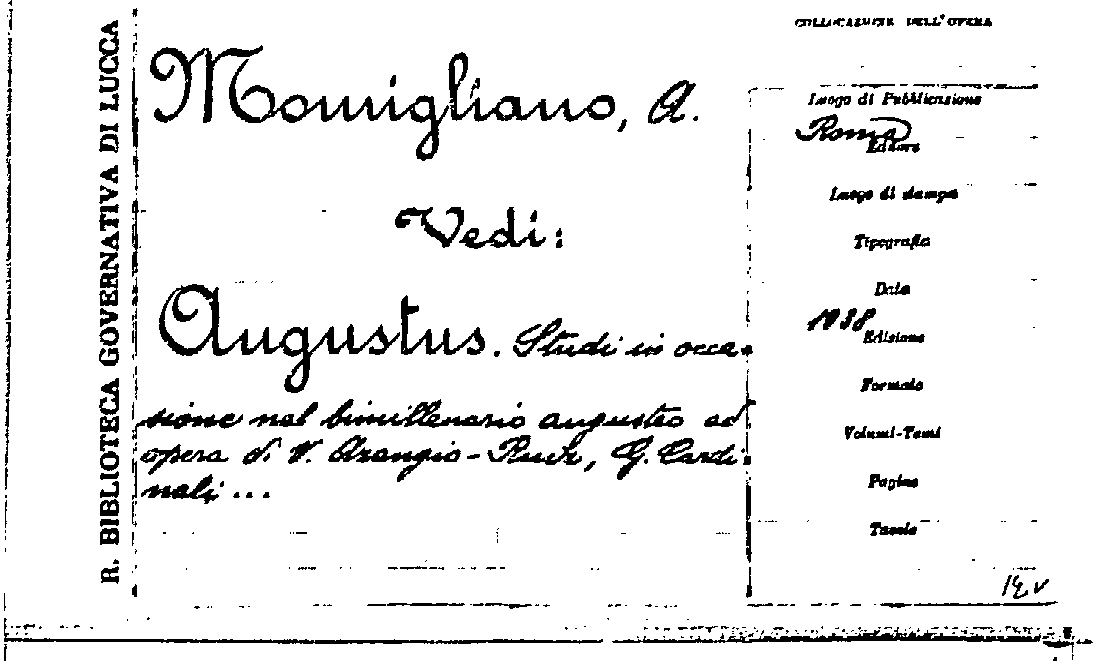 R. BIBLIOTECA GOVERNATIVA DI LUCCA
Momigliano, A.
Vedi:
Augustus. Studi in occa-
sione nel bimillenario augusteo ad
opera di V. Arangio-Ruiz, G. Cardi-
nali ...
COLLOCAZIONE DELL'OPERA
Luogo di Pubblicazione
Roma
Editore
Luogo di stampa
Tipografia
Data
1938
Edizione
Formato
Volumi-Tomi
Pagine
Tavole